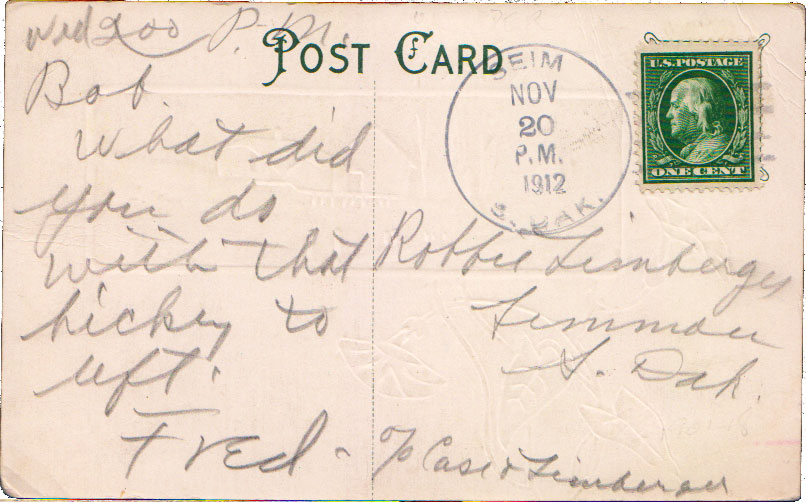 Wed 200 P.M.
POST CARD
Bob.
What did
you do
with that
hickey to
Fred -
SEIM
NOV
20
P.M.
1912
S. DAK.
U.S. POSTAGE
ONE CENT
Robbie Limberger
Lemmon
S. Dak.
c/o Case & Limberger